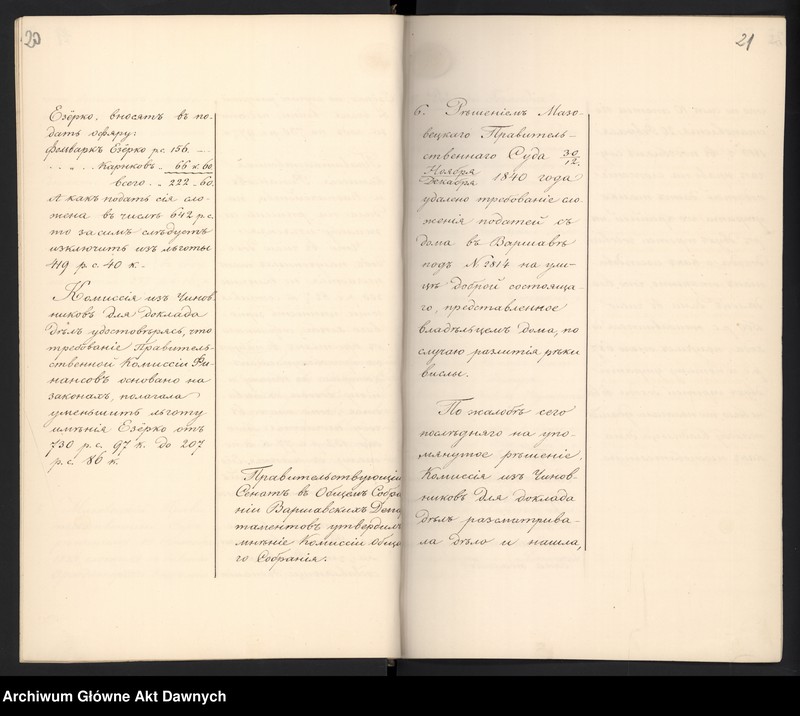 20
Езёрко. вносятъ въ по-
дать офяру:
фольваркъ Езёрко рс. 156. —
„ . . . Карнковъ . . 66 к. 60
всего . „ 222 „ 60.
А какъ подать сія сло-
жена въ числѣ 642 р.с.
то за симъ слѣдуетъ
изключить изъ льготы
419 р.с. 40 к. -
Комиссія изъ Чинов-
никовъ для доклада
дѣлъ удостовѣрясь, что
требованіе Правитель-
ственной Комиссіи Фи-
нансовъ основано на
законахъ, полагала
уменьшить льготу
имѣнія Езёрко отъ
730 р.с. 97 к. до 207
р.с. 86 к.
Правительствующій
Сенатъ въ Общемъ Собра
ніи Варшавскихъ Депа
таментовъ утвердилъ
мнѣніе Комиссіи Обща
го Собранія.
21
6. Рѣшеніемъ Мазо-
вецкаго Правитель-
ственнаго Суда 30/12.
Ноября/Декабря 1840 года
удалено требованіе сло-
женія податей съ
дома въ Варшавѣ
подъ N. 2814 на ули-
цѣ Доброй состояща-
го, представленное
владѣльцемъ дома, по
случаю разлитія рѣки
вислы.
По жалобѣ сего
послѣдняго на упо-
мянутое рѣшеніе,
Комиссія изъ Чинов-
никовъ для доклада
дѣлъ разсматрива-
ла дѣло и нашла,
Archiwum Główne Akt Dawnych